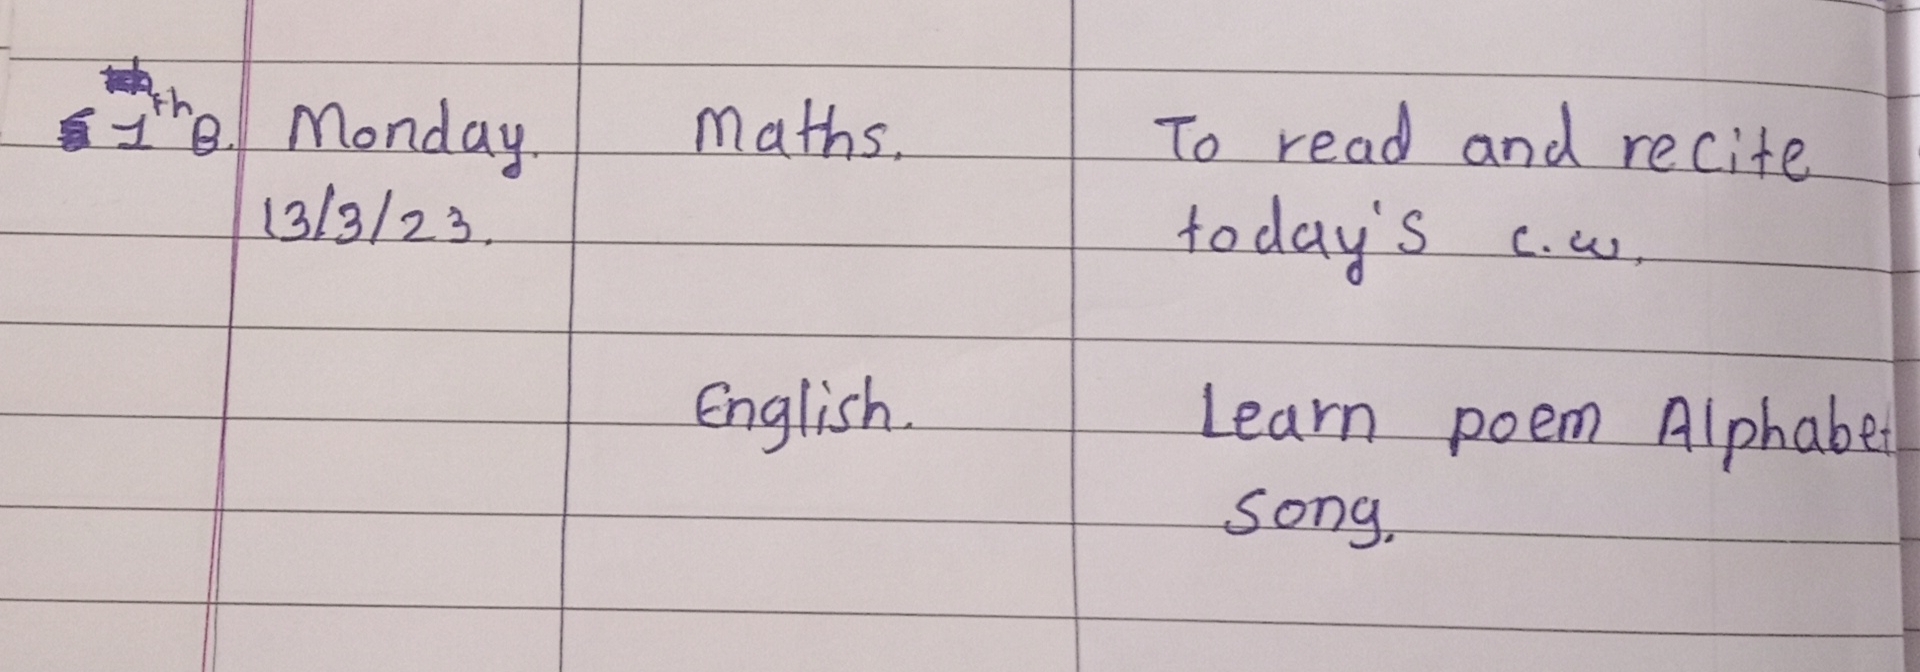 1th B. Monday. Maths. To read and recite
13/3/23. today's c.w.
English. Learn poem Alphabet
song.